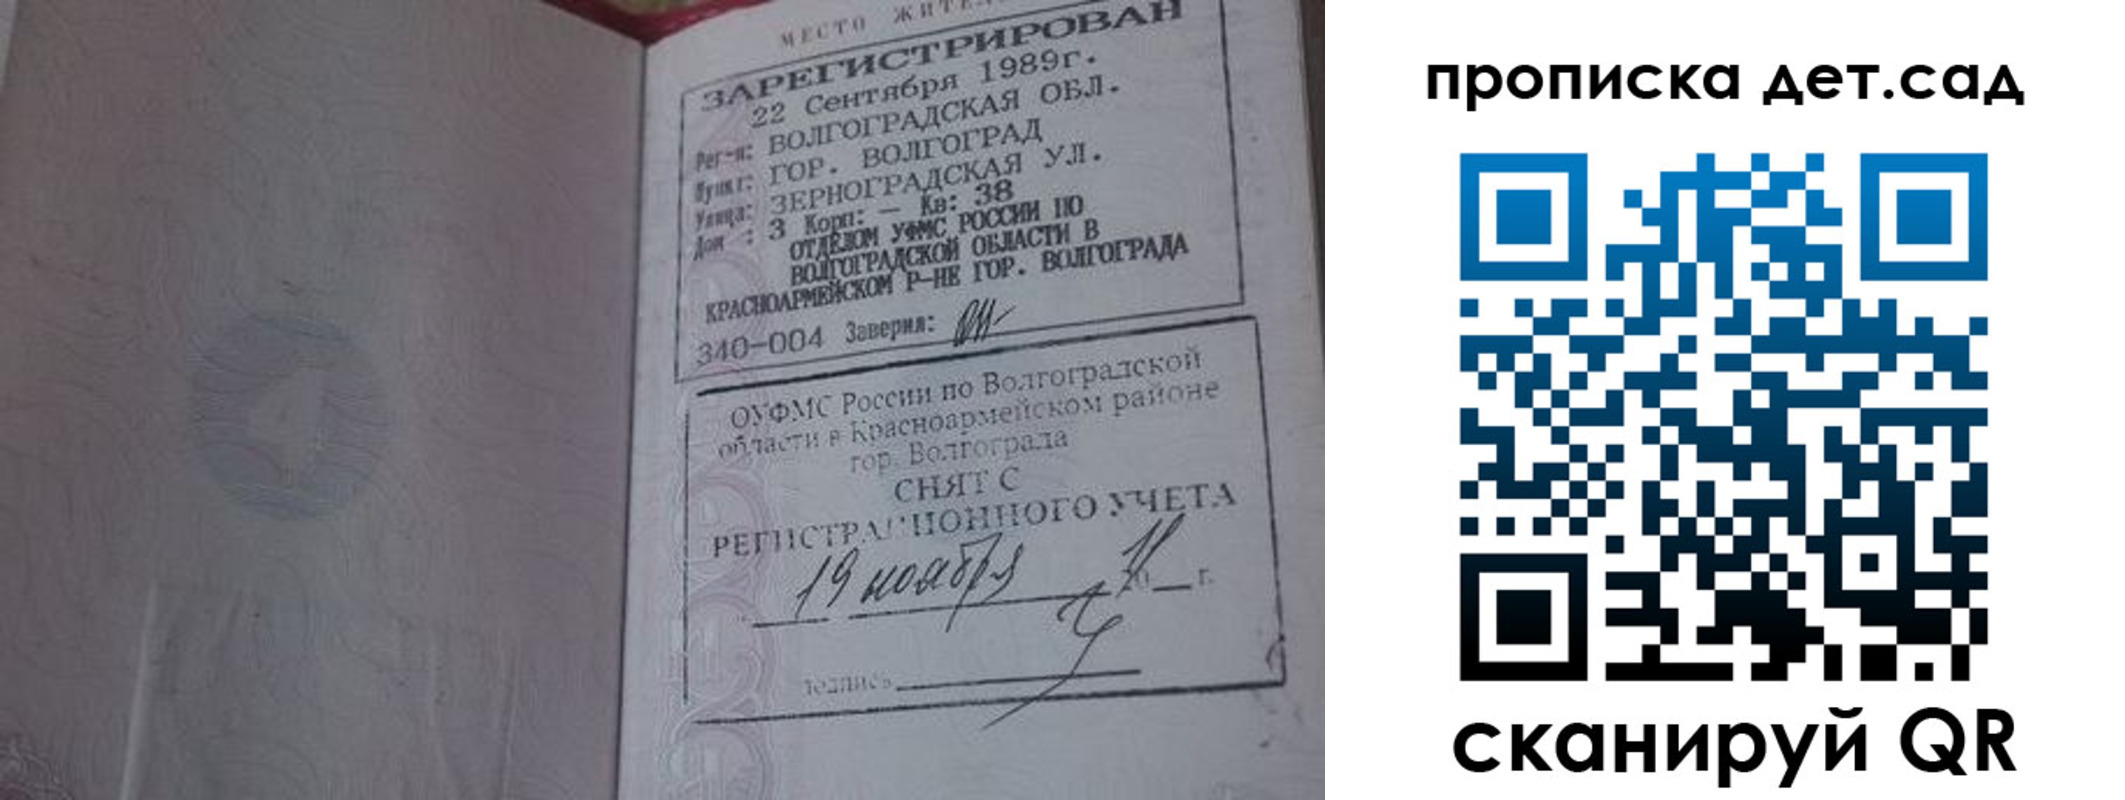 МЕСТО ЖИТЕЛ
ЗАРЕГИСТРИРОВАН
22 Сентября 1989г.
Рег-н: ВОЛГОГРАДСКАЯ ОБЛ.
Пункт: ГОР. ВОЛГОГРАД
Улица: ЗЕРНОГРАДСКАЯ УЛ.
Дом : 3 Корп: — Кв: 38
ОТДЕЛОМ УФМС РОССИИ ПО
ВОЛГОГРАДСКОЙ ОБЛАСТИ В
КРАСНОАРМЕЙСКОМ Р-НЕ ГОР. ВОЛГОГРАДА
340-004 Заверил:
ОУФМС России по Волгоградской
области в Красноармейском районе
гор. Волгограда
СНЯТ С
РЕГИСТРАЦИОННОГО УЧЕТА
19 ноября 20 г.
подпись
прописка дет.сад
сканируй QR